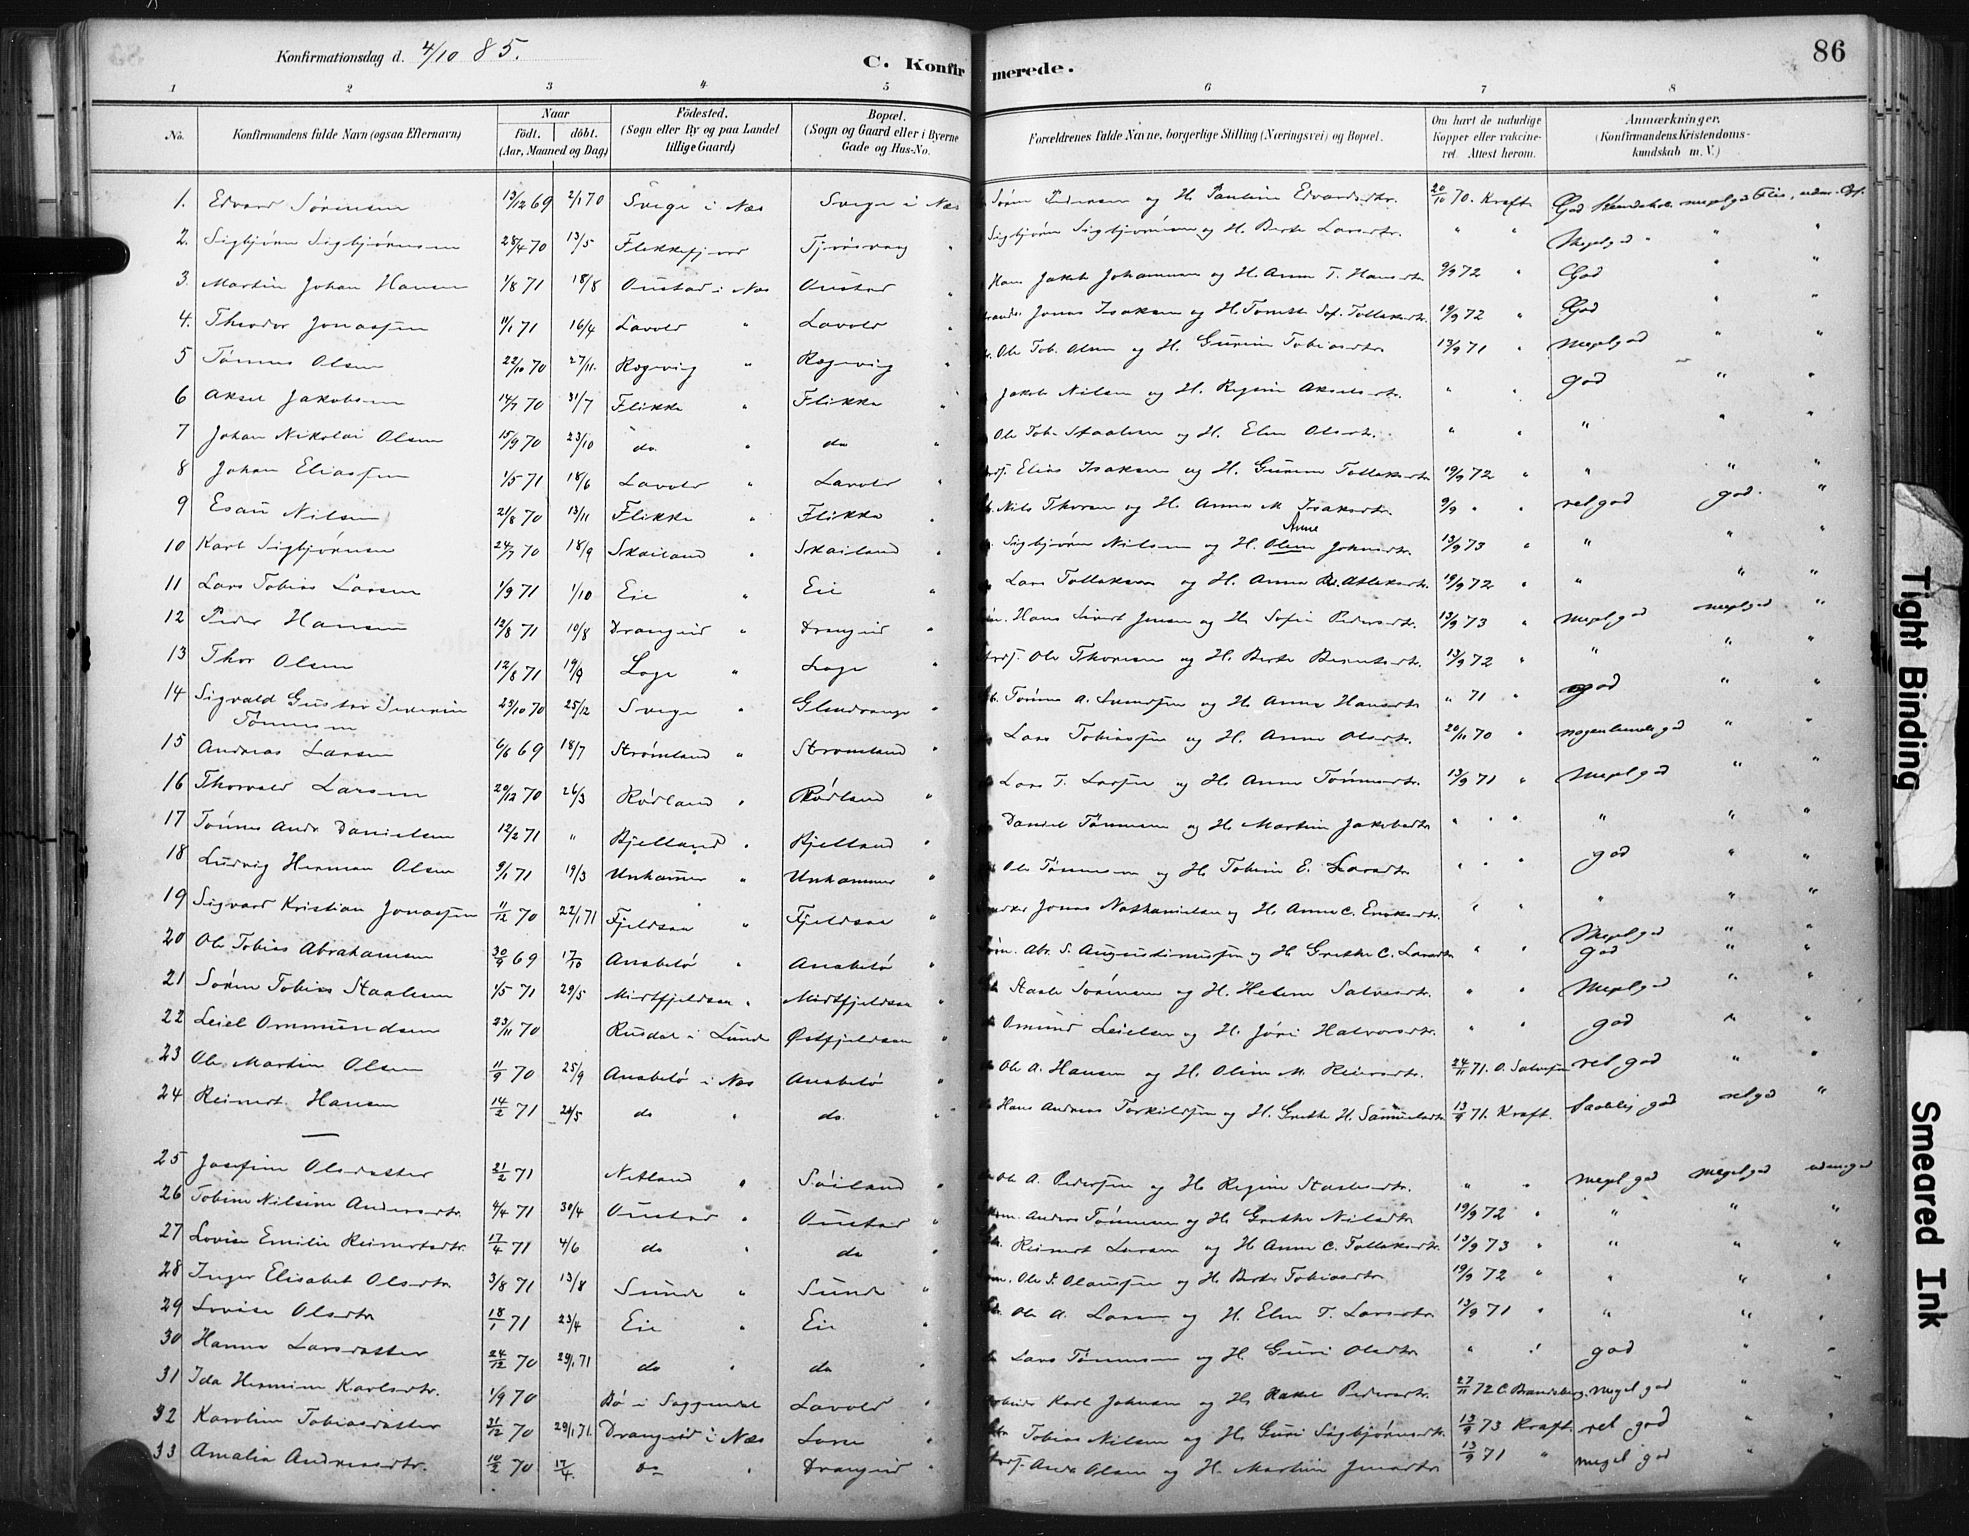 Konfirmationsdag d. 4/10 85.
C. Konfirmerede.
86
1 2 3 4 5 6 7 8
No. Konfirmandens fulde Navn (ogsaa Efternavn) Naar født. døbt. (Aar, Maaned og Dag) Fødested. (Sogn eller By og paa Landet tillige Gaard) Bopæl. (Sogn og Gaard eller i Byerne Gade og Hus-No. Forældrenes fulde Navne, borgerlige Stilling (Næringsvei) og Bopæl. Om havt de naturlige Kopper eller vaksineret. Attest herom. Anmærkninger. (Konfirmandens Kristendomskundskab m. V.)
1. Edvard Sørensen 13/12 69 2/1 70 Svege i Næs Svege i Næs Søren Pedersen og H. Pauline Edvardsdtr. 20/10 70. Kraft God Kundskab. meget god Flid
2. Sigbjørn Sigbjørnsen 28/4 70 13/5 Flekkefjord Tjørsvaag Sigbjørn Sigbjørnsen og H. Berte Larsdtr. " " Meget god " " "
3. Martin Johan Hansen 1/8 71 18/8 Oustad i Næs Oustad " Hans Jakob Johannesen og H. Anne T. Hansdtr 9/9 72 " God " "
4. Theodor Jonassen 11/1 71 16/4 Lavold " Lavold " Jonas Isaksen og H. Tomette Sof. Tollaksdtr. 19/9 72 " God " "
5 Tønnes Olsen 22/10 70 27/11. Rægevig " Rægevig " Ole Tob. Olsen og H. Gurine Tobiasdtr 13/9 71 " Meget god " "
6 Aksel Jakobsen 14/7 70 31/7 Flikke " Flikke " Jakob Nilsen og H. Regine Akselsdtr. " " god " "
7 Johan Nikolai Olsen 15/9 70 23/10 do. " do " Ole Tob. Staalesen og H. Elen Olsdtr. " " " " "
8 Johan Eliassen 1/5 71 18/6 Lavold " Lavold " Elias Isaksen og H. Gurine Tollaksdtr 19/9 72 " " " "
9 Esau Nilsen 21/8 70 13/11 Flikke " Flikke " Nils Thorsen og H. Anna M. Isaksdtr. 9/9 " " ret god god. "
10 Karl Sigbjørnsen 24/7 70 18/9 Skailand " Skailand " Sigbjørn Nilsen og H. Olene Anne Johnsdtr. 13/9 73 " " " "
11 Lars Tobias Larsen 1/9 71 1/10 Eie " Eie " Lars Tollaksen og H. Anna B. Atlaksdtr. 19/9 72 " " " "
12 Peder Hansen 12/8 71 10/8 Drangeid " Drangeid " Hans Sivert Jensen og H. Sofie Pedersdtr. 13/9 73 " Meget god meget god "
13 Thor Olsen 12/8 71 19/9 Loge " Loge " Ole Thorsen og H. Berte Berntsdtr. 13/9 72 " " " "
14 Sigvald Gustav Severin Tønnesen 23/10 70 25/12 Svege " Glendrange " Tønnes A. Svendsen og H. Anna Hansdtr " 71 " god " "
15 Andreas Larsen 6/6 69 18/7 Strømland " Strømland " Lars Tobiassen og H. Anna Olsdtr. 20/11 70 " nogenlunde god " "
16 Thorvald Larsen 20/12 70 26/3 Rødland " Rødland " Lars T. Larsen og H. Anna Tønnesdtr. 13/9 71 " Meget god " "
17 Tønnes Andr. Danielsen 12/2 71 " Kjelland " Kjelland " Daniel Tønnesen og H. Martine Jakobsdtr " " " " " "
18 Ludvig Herman Olsen 9/1 71 19/3 Unhammer " Unhammer " Ole Tønnesen og H. Tobine E. Larsdtr " " " god " "
19 Sigvard Kristian Jonassen 11/12 70 22/1 71 Fjeldsaa " Fjeldsaa " Jonas Nathanielsen og H. Anne C. Eriksdtr. " " " " "
20 Ole Tobias Abrahamsen 30/9 69 17/10 Anabelø " Anabelø " Abr. S. Augustinussen og H. Grethe C. Larsdtr " " Meget god god " "
21 Søren Tobias Staalesen 1/5 71 29/5 Midtfjeldsaa " Midtfjeldsaa " Staale Sørensen og H. Helene Salvesdtr. " " Meget god " "
22 Leiel Ommundsen 23/11 70 Rusdal i Lunde Østfjeldsaa " Omund Leielsen og H. Jøri Halvorsdtr. " " god " "
23 Ole Martin Olsen 11/9 70 25/9 Anabelø i Næs Anabelø " Ole A. Hansen og H. Oline M. Reiersdtr. 24/11 71. O. Salvesen ret god " "
24 Reinert Hansen 14/2 71 29/5 do " do. " Hans Andreas Torkildsen og H. Grethe H. Samuelsdtr 13/9 71. Kraft. taalelig god ret god "
25 Josefine Olsdatter 21/2 71 Netland " Søiland " Ole A. Pedersen og H. Regine Staalesdtr. " " meget god meget god
26 Tobine Nilsine Andersdtr. 4/4 71 30/4 Oustad " Oustad " Anders Tønnesen og H. Grethe Nilsdtr 19/9 72 " " " "
27 Lovise Emilie Reinertsdtr. 17/4 71 4/6 do " do " Reinert Larsen og H. Anne C. Tollaksdtr. 13/9 73 " " " "
28 Inger Elisabet Olsdtr. 3/8 71 13/8 Sunde " Sunde " Ole P. Olaussen og H. Berte Tobiasdtr 19/9 72 " " " "
29 Lovise Olsdtr. 18/1 71 23/4 Eie " Eie " Ole A. Larsen og H. Elen T. Larsdtr 13/9 71 " " " "
30 Hanne Larsdatter 24/12 70 29/1 71 do " do " Lars Tønnesen og H. Guri Olsdtr " " god " "
31 Ida Hermine Karlsdtr. 1/9 70 Bø i Soggendal Lavold " Karl Johnsen og H. Rakel Pedersdtr. 27/11 72 C. Brandsberg. meget god " "
32 Karoline Tobiasdatter 21/12 70 29/1 71. Drangeid i Næs Lone " Tobias Nilsen og H. Guri Sigbjørnsdtr 13/9 73 Kraft. ret god " "
33 Amalia Andreasdtr. 10/2 70 17/4. do " Drangeid " Andr. Olsen og H. Martine Jensdtr 13/9 71 " meget god " "
Tight Binding
Smeared Ink